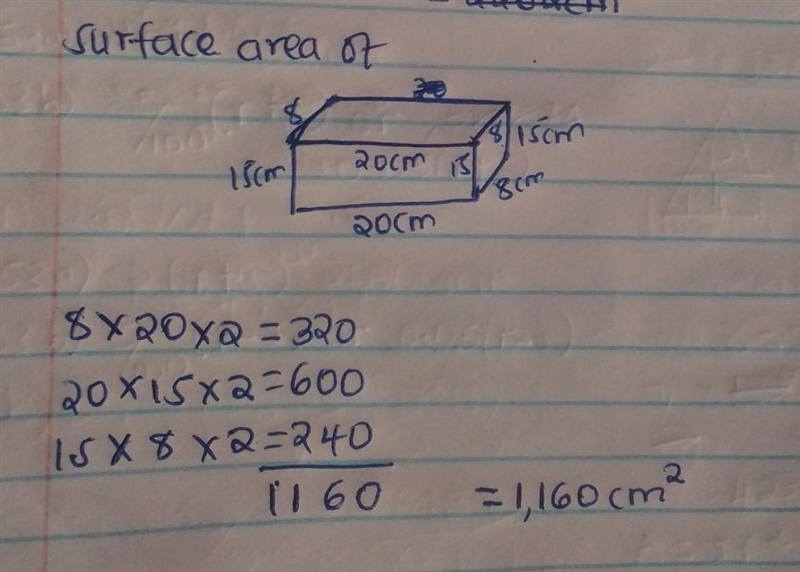 surface area of
8
8 15cm
15cm 20cm 15
8cm
20cm
8 × 20 × 2 = 320
20 × 15 × 2 = 600
15 × 8 × 2 = 240
1160 = 1,160 cm²